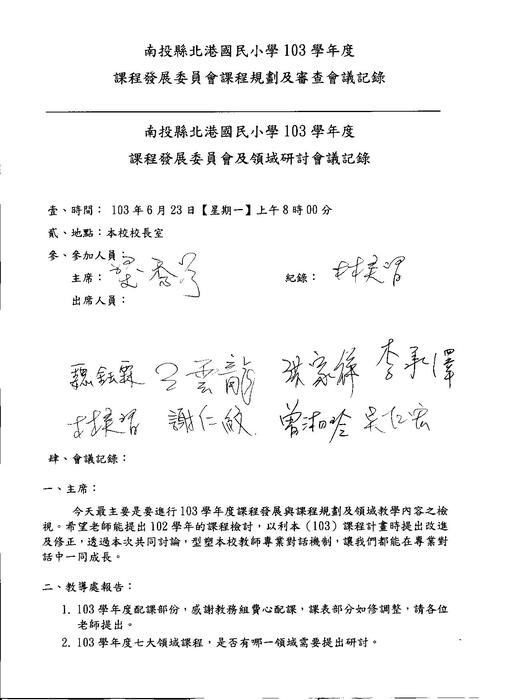 南投縣北港國民小學 103 學年度
課程發展委員會課程規劃及審查會議記錄
南投縣北港國民小學 103 學年度
課程發展委員會及領域研討會議記錄
壹、時間： 103 年 6 月 23 日【星期一】上午 8 時 00 分
貳、地點：本校校長室
參、參加人員：
主席： 紀錄：
出席人員：
王雲龍 洪家祥 李承澤
謝仁 曾湘玲 吳仁宏
肆、會議記錄：
一、主席：
今天最主要是要進行 103 學年度課程發展與課程規劃及領域教學內容之檢
視。希望老師能提出 102 學年的課程檢討，以利本（103）課程計畫時提出改進
及修正，透過本次共同討論，型塑本校教師專業對話機制，讓我們都能在專業對
話中一同成長。
二、教導處報告：
1. 103 學年度配課部份，感謝教務組費心配課，課表部分如修調整，請各位
老師提出。
2. 103 學年度七大領域課程，是否有哪一領域需要提出研討。